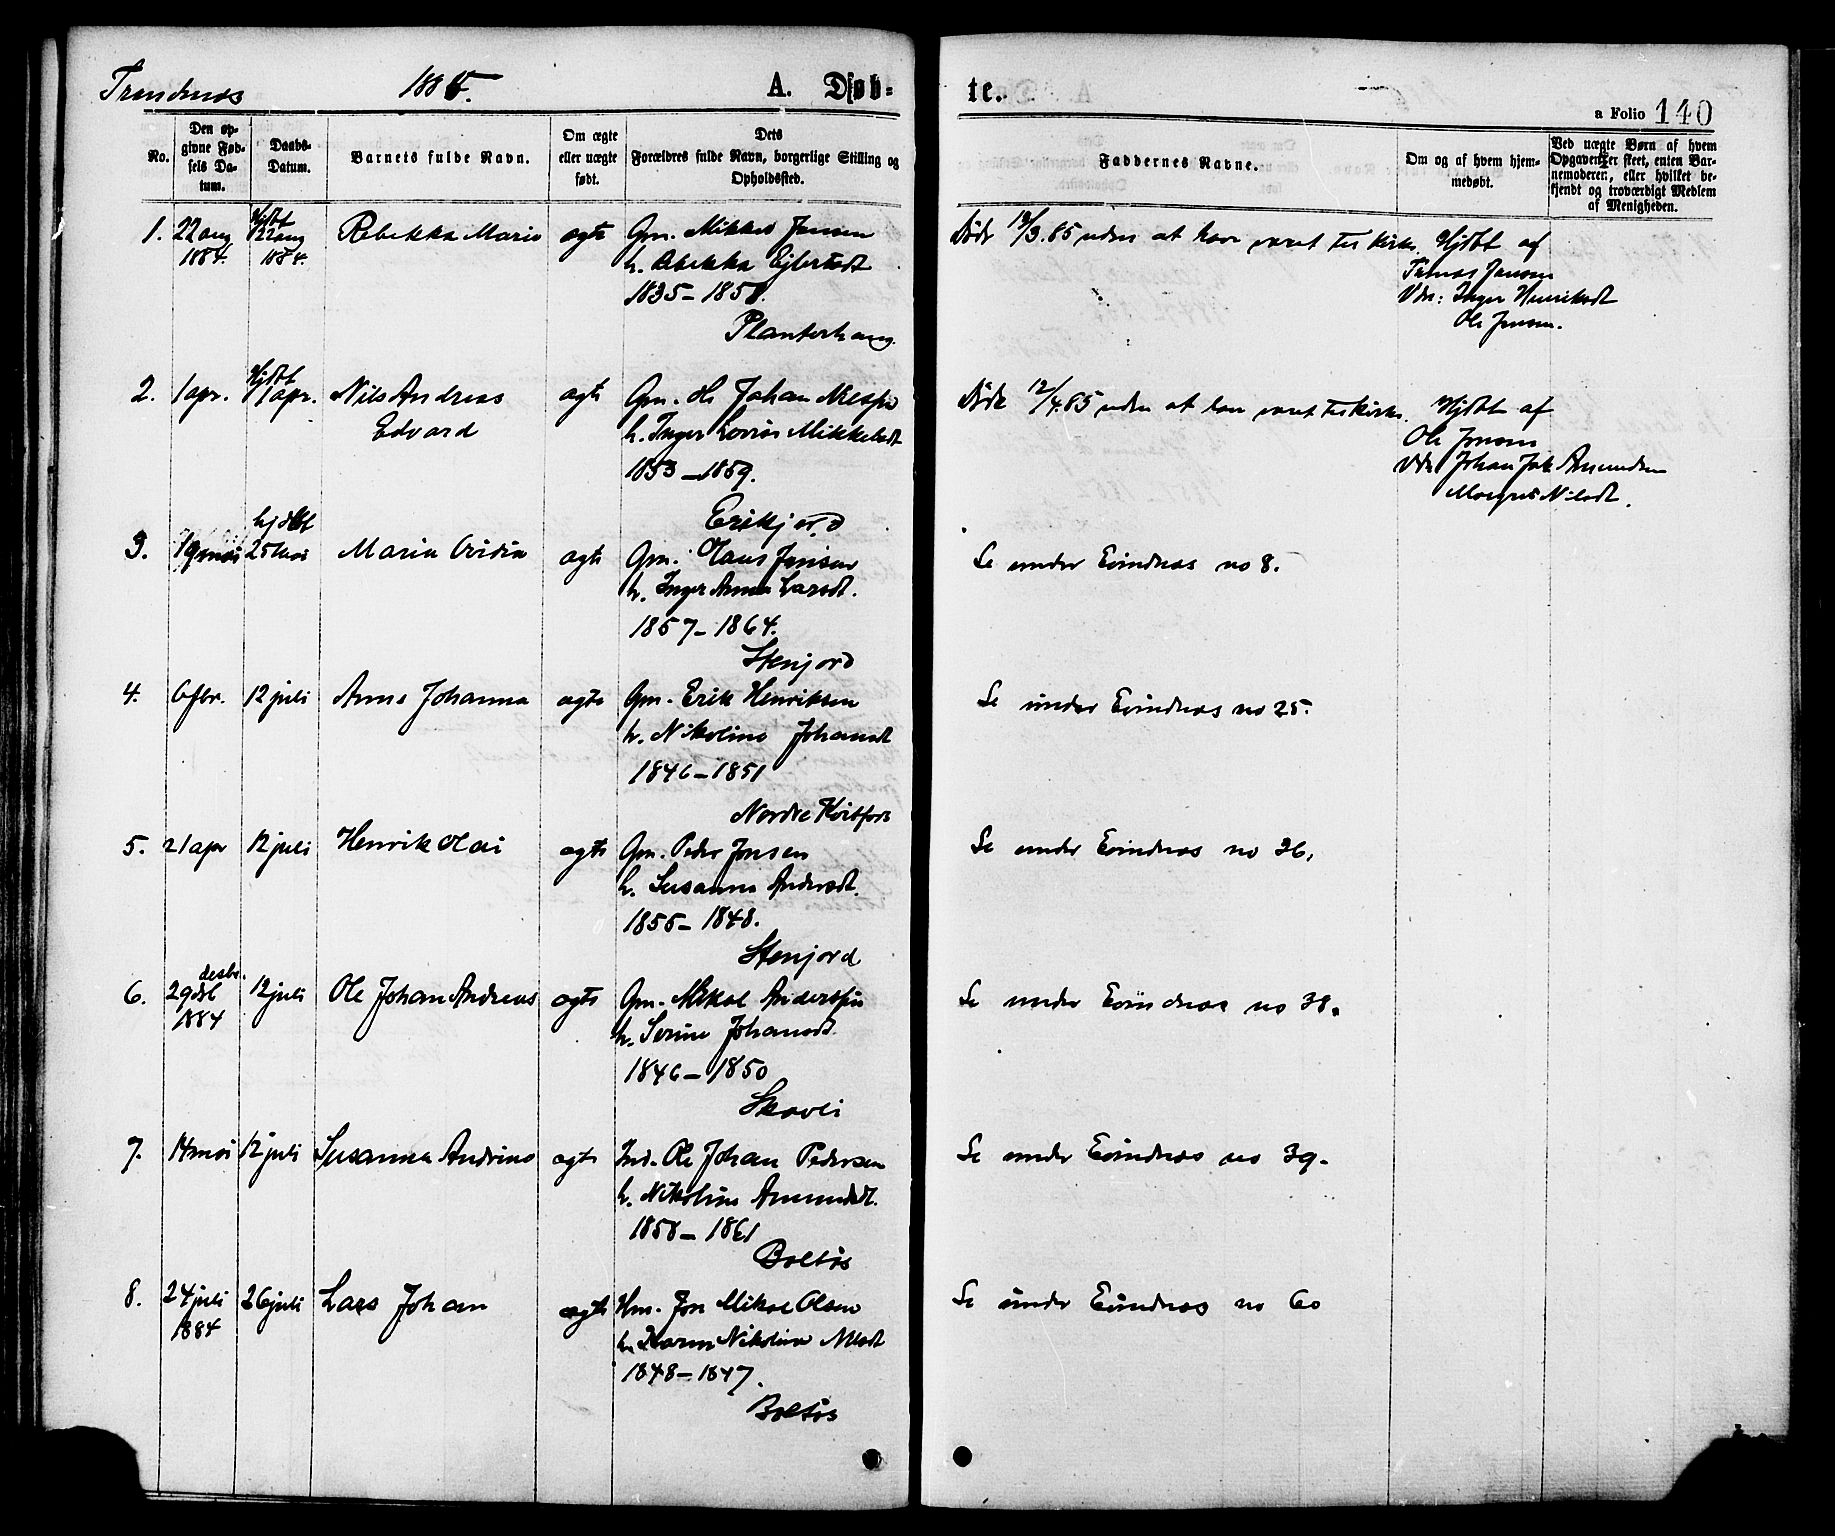 Trondenæs 1885. A. Døb-
te.
a Folio 140
No.
Den op-
givne Fød-
sels Da-
tum.
Daabs-
Datum.
Barnets fulde Navn.
Om ægte
eller uægte
født.
Dets
Forældres fulde Navn, borgerlige Stilling og
Opholdssted.
Faddernes Navne.
Om og af hvem hjem-
medøbt.
Ved uægte Børn af hvem
Opgaven er skeet, enten Bar-
nemoderen, eller hvilket be-
kjendt og troværdigt Medlem
af Menigheden.
1. 22 aug 1884. Hjdbt 22 aug 1884. Rebekka Marie ægte Gm. Mikkel Jensen
h. Rebekka Ejlertsdt
1835 - 1858.
Planterhaug.
Døde 19/3.85 uden at have været til kirke. Hjdbt af
Tomas Jensen
Vdn: Inger Henriksdt
Ole Jensen.
2. 1 apr. Hjdbt 11 apr. Nils Andreas
Edvard
ægte Gm. Ole Johan Nilssen
h. Inger Lovise Mikkelsdt
1853 - 1859.
Erikjord
Døde 12/4.85 uden at have været til kirke. Hjdbt af
Ole Jonsen
Vdn Johan Jak Amundsen
Margret Nilsdt.
3. 19 mai hjdbt 25 mai Maria Ovidia ægte Gm. Hans Jensen
h. Inger Anna Larsdt.
1857 - 1864.
Stenjord
Se under Evindnæs no 8.
4. 6 fbr. 12 juli Anne Johanna ægte Gm. Erik Henriksen
h. Nikoline Johansdt
1846 - 1851
Nordre Kvitfors
Se under Evindnæs no 25.
5. 21 apr 12 juli Henrik Olai ægte Gm. Peder Jonsen
h. Susanna Andersdt.
1855 - 1848.
Stenjord
Se under Evindnæs no 36.
6. 29 desbr. 1884 12 juli Ole Johan Andreas ægte Gm. Mikal Anderssen
h. Serine Johansdt.
1846 - 1850
Skovli
Se under Evindnæs no 38.
7. 14 mai 12 juli Susanna Andrine ægte Ind. Ole Johan Pedersen
h. Nikoline Amundsdt.
1858 - 1861
Boltås
Se under Evindnæs no 39.
8. 24 juli 1884 26 juli Lars Johan ægte Hm. Jon Mikal Olsen
h. Karen Nikolina Nilsdt
1848 - 1847.
Boltås
Se under Evindnæs no 60